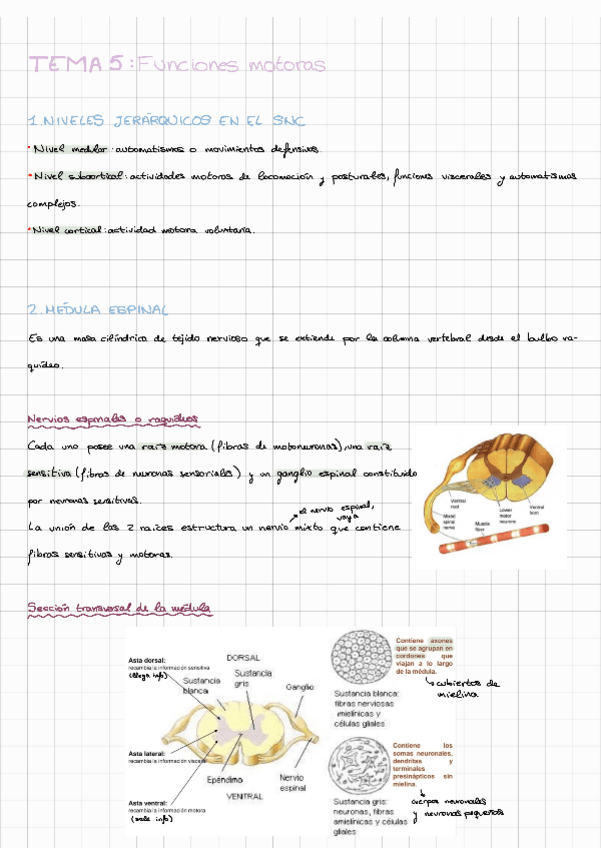 TEMA 5: Funciones motoras
1. NIVELES JERÁRQUICOS EN EL SNC
• Nivel medular: automatismos o movimientos defensivos.
• Nivel subcortical: actividades motoras de locomoción y posturales, funciones viscerales y automatismos
complejos.
• Nivel cortical: actividad motora voluntaria.
2. MÉDULA ESPINAL
Es una masa cilíndrica de tejido nervioso que se extiende por la columna vertebral desde el bulbo ra-
quídeo.
Nervios espinales o raquídeos
Cada uno posee una raíz motora (fibras de motoneuronas), una raíz
sensitiva (fibras de neuronas sensoriales) y un ganglio espinal constituido
por neuronas sensitivas.
el nervio espinal,
vaya
La unión de las 2 raíces estructura un nervio mixto que contiene
fibras sensitivas y motoras.
Ventral
root
Mixed
spinal
nerve
Muscle
fiber
Lower
motor
neurone
Ventral
horn
Sección transversal de la médula
Asta dorsal:
recambia la información sensitiva
(llega info)
Asta lateral:
recambia la información visceral
Asta ventral:
recambia la información motora
(sale info)
DORSAL
Sustancia
blanca
Sustancia
gris
Ganglio
Epéndimo
Nervio
espinal
VENTRAL
Sustancia blanca:
fibras nerviosas
mielínicas y
células gliales
Contiene axones
que se agrupan en
cordones que
viajan a lo largo
de la médula.
cubiertos de
mielina
Sustancia gris:
neuronas, fibras
amielínicas y células
gliales
Contiene los
somas neuronales,
dendritas y
terminales
presinápticos sin
mielina.
cuerpos neuronales
y neuronas pequeñas